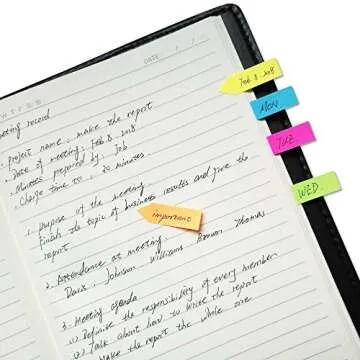 M T W T F S S
DATE
Meeting record
Project name: make the report
Date of meeting: Feb 8. 2018
Minutes prepared by: Job
Charge time to: 20 minutes.
1. Purpose of the meeting
Finish the topic of business results and give the
report
important
2. Attendence at meeting
Davis. Johnson Williams. Brown Thomas
3. Meeting agenda
(1) Definise the responsibility of every member
(2) Talk about how to write the report
Make the report the whole one
Feb 8. 2018
MON
TUE
WED